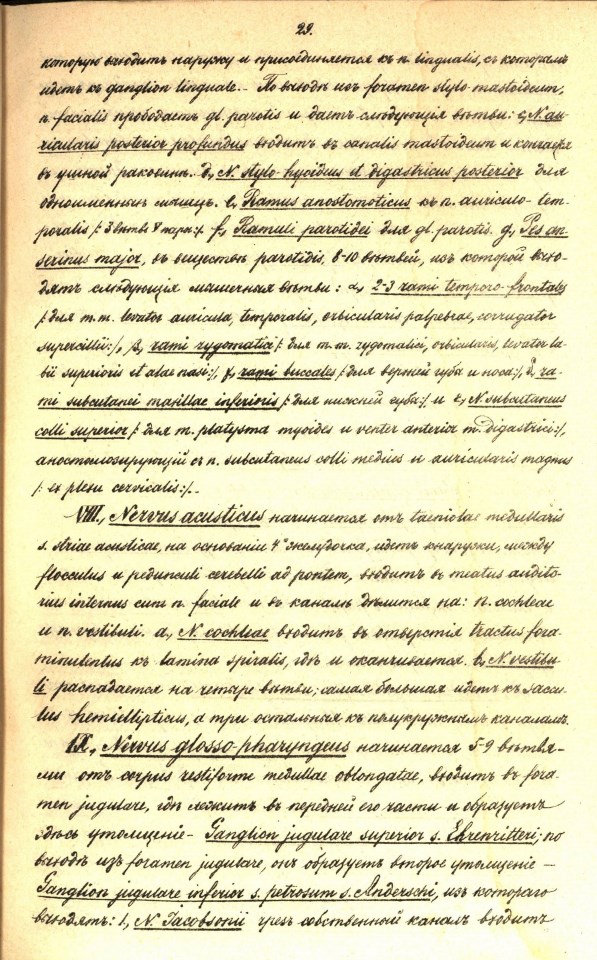 29.
которую выходитъ наружу и присоединяется къ n. lingualis, съ которымъ
идетъ къ ganglion linguale. – По выходѣ изъ foramen stylo-mastoideum,
n. facialis прободаетъ gl. parotis и даетъ слѣдующія вѣтви: c, N. au-
ricularis posterior profundus входитъ въ canalis mastoideum и кончается
въ ушной раковинѣ. d, N. stylo-hyoideus et digastricus posterior для
одноименныхъ мышцъ. e, Ramus anostomoticus къ n. auriculo-tem-
poralis /: 3 вѣтвь V пары :/. f, Ramuli parotidei для gl. parotis. g, Pes an-
serinus major, въ веществѣ parotidis, 8-10 вѣтвей, изъ которой выхо-
дятъ слѣдующія мышечныя вѣтви: α, 2-3 rami temporo-frontales
/: для m.m. levator auricula, temporalis, orbicularis palpebrae, corrugator
supercillii :/, β, rami zygomatici /: для m.m. zygomatici, orbicularis, levator la-
bii superioris et alae nasi :/, γ, rami buccales /: для верхней губы и носа :/, δ, ra-
mi subcutanei maxillae inferioris /: для нижней губы :/ и ε, N. subcutaneus
colli superior /: для m. platysma myoides и venter anterior m. digastrici :/,
анастомозирующій съ n. subcutaneus colli medius и auricularis magnus
/: ex plexu cervicalis :/. –
VIII., Nervus acusticus начинается отъ taeniolae medullaris
s. striae acusticae, на основаніи 4го желудочка, идетъ кнаружи, между
flocculus и pedunculi cerebelli ad pontem, входитъ въ meatus audito-
rius internus cum n. faciale и въ каналѣ дѣлится на: n. cochleae
и n. vestibuli. a, N. cochleae входитъ въ отверстія tractus fora-
minulentus къ lamina spiralis, гдѣ и оканчивается. b, N. vestibu-
li распадается на четыре вѣтви; самая большая идетъ къ saccu-
lus hemiellipticus, а три остальныя къ полукружнымъ каналамъ.
IX., Nervus glosso-pharyngeus начинается 5-9 вѣтвя-
ми отъ corpus restiforme medullae oblongatae, входитъ въ fora-
men jugulare, гдѣ лежитъ въ передней его части и образуетъ
здѣсь утолщеніе – Ganglion jugulare superior s. Ehrenritteri; по
выходѣ изъ foramen jugulare, онъ образуетъ второе утолщеніе –
Ganglion jugulare inferior s. petrosum s. Anderschi, изъ котораго
выходятъ: 1, N. Jacobsonii чрезъ собственный каналъ входитъ